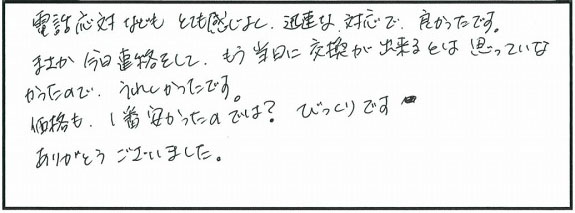 電話応対なども とても感じよく、迅速な対応で、良かったです。
まさか今日連絡をして、もう当日に交換が出来るとは思っていな
かったので、うれしかったです。
価格も、1番安かったのでは？ びっくりです
ありがとうございました。